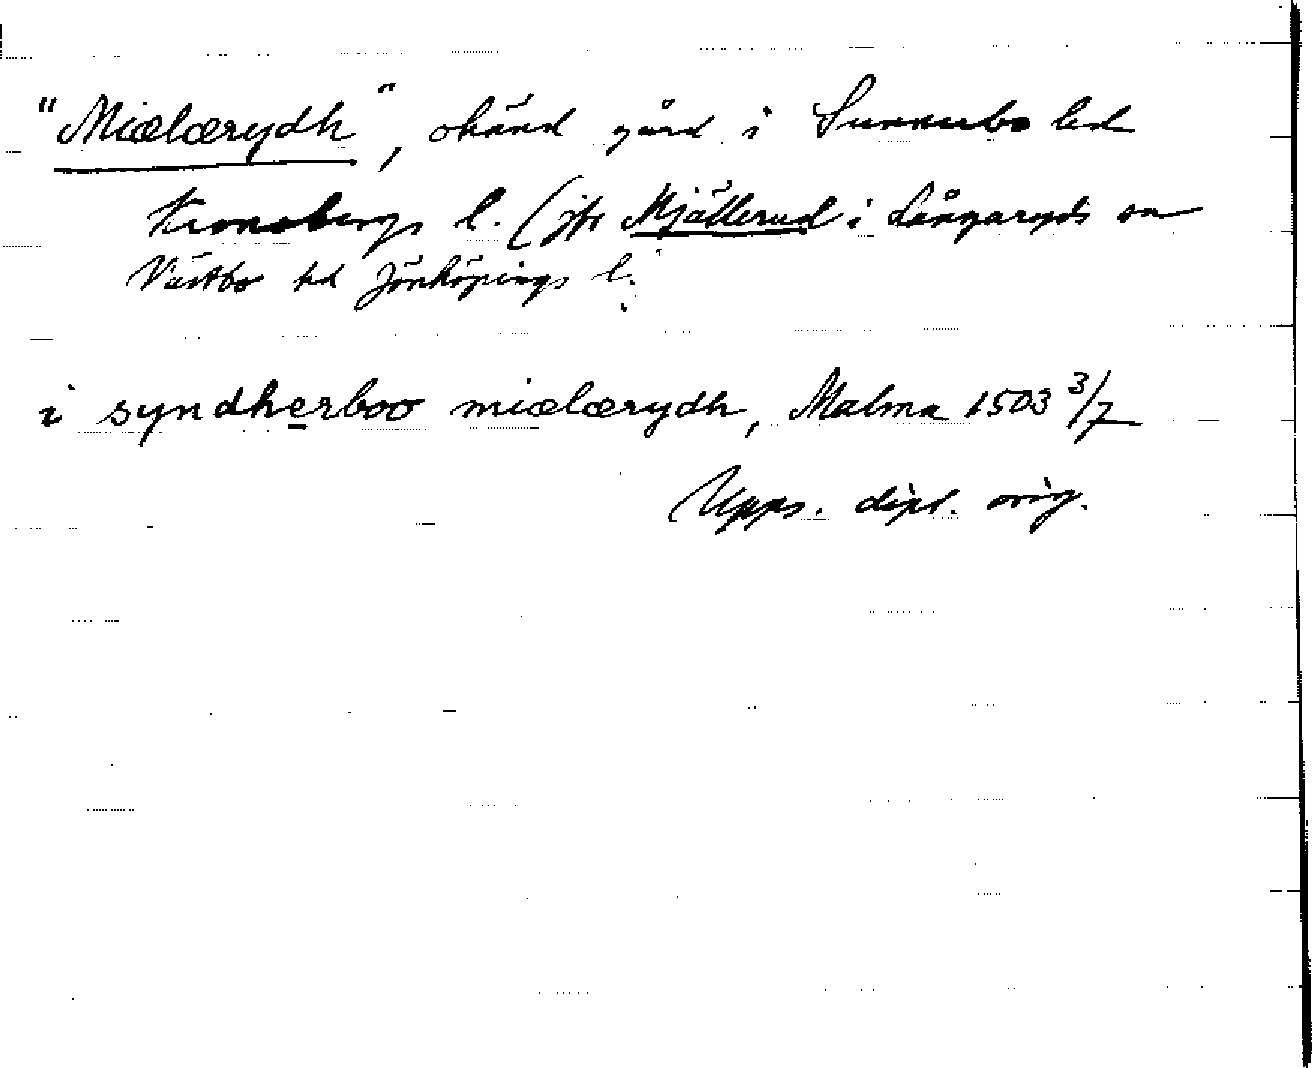 "Miælærydh", okänd gård i Sunnerbo hd
Kronobergs l. (jfr Mjällerud i Långaryds sn
Västbo hd Jönköpings l.
i syndherboo miælærydh, Malma 1503 3/7
Upps. dipl. orig.